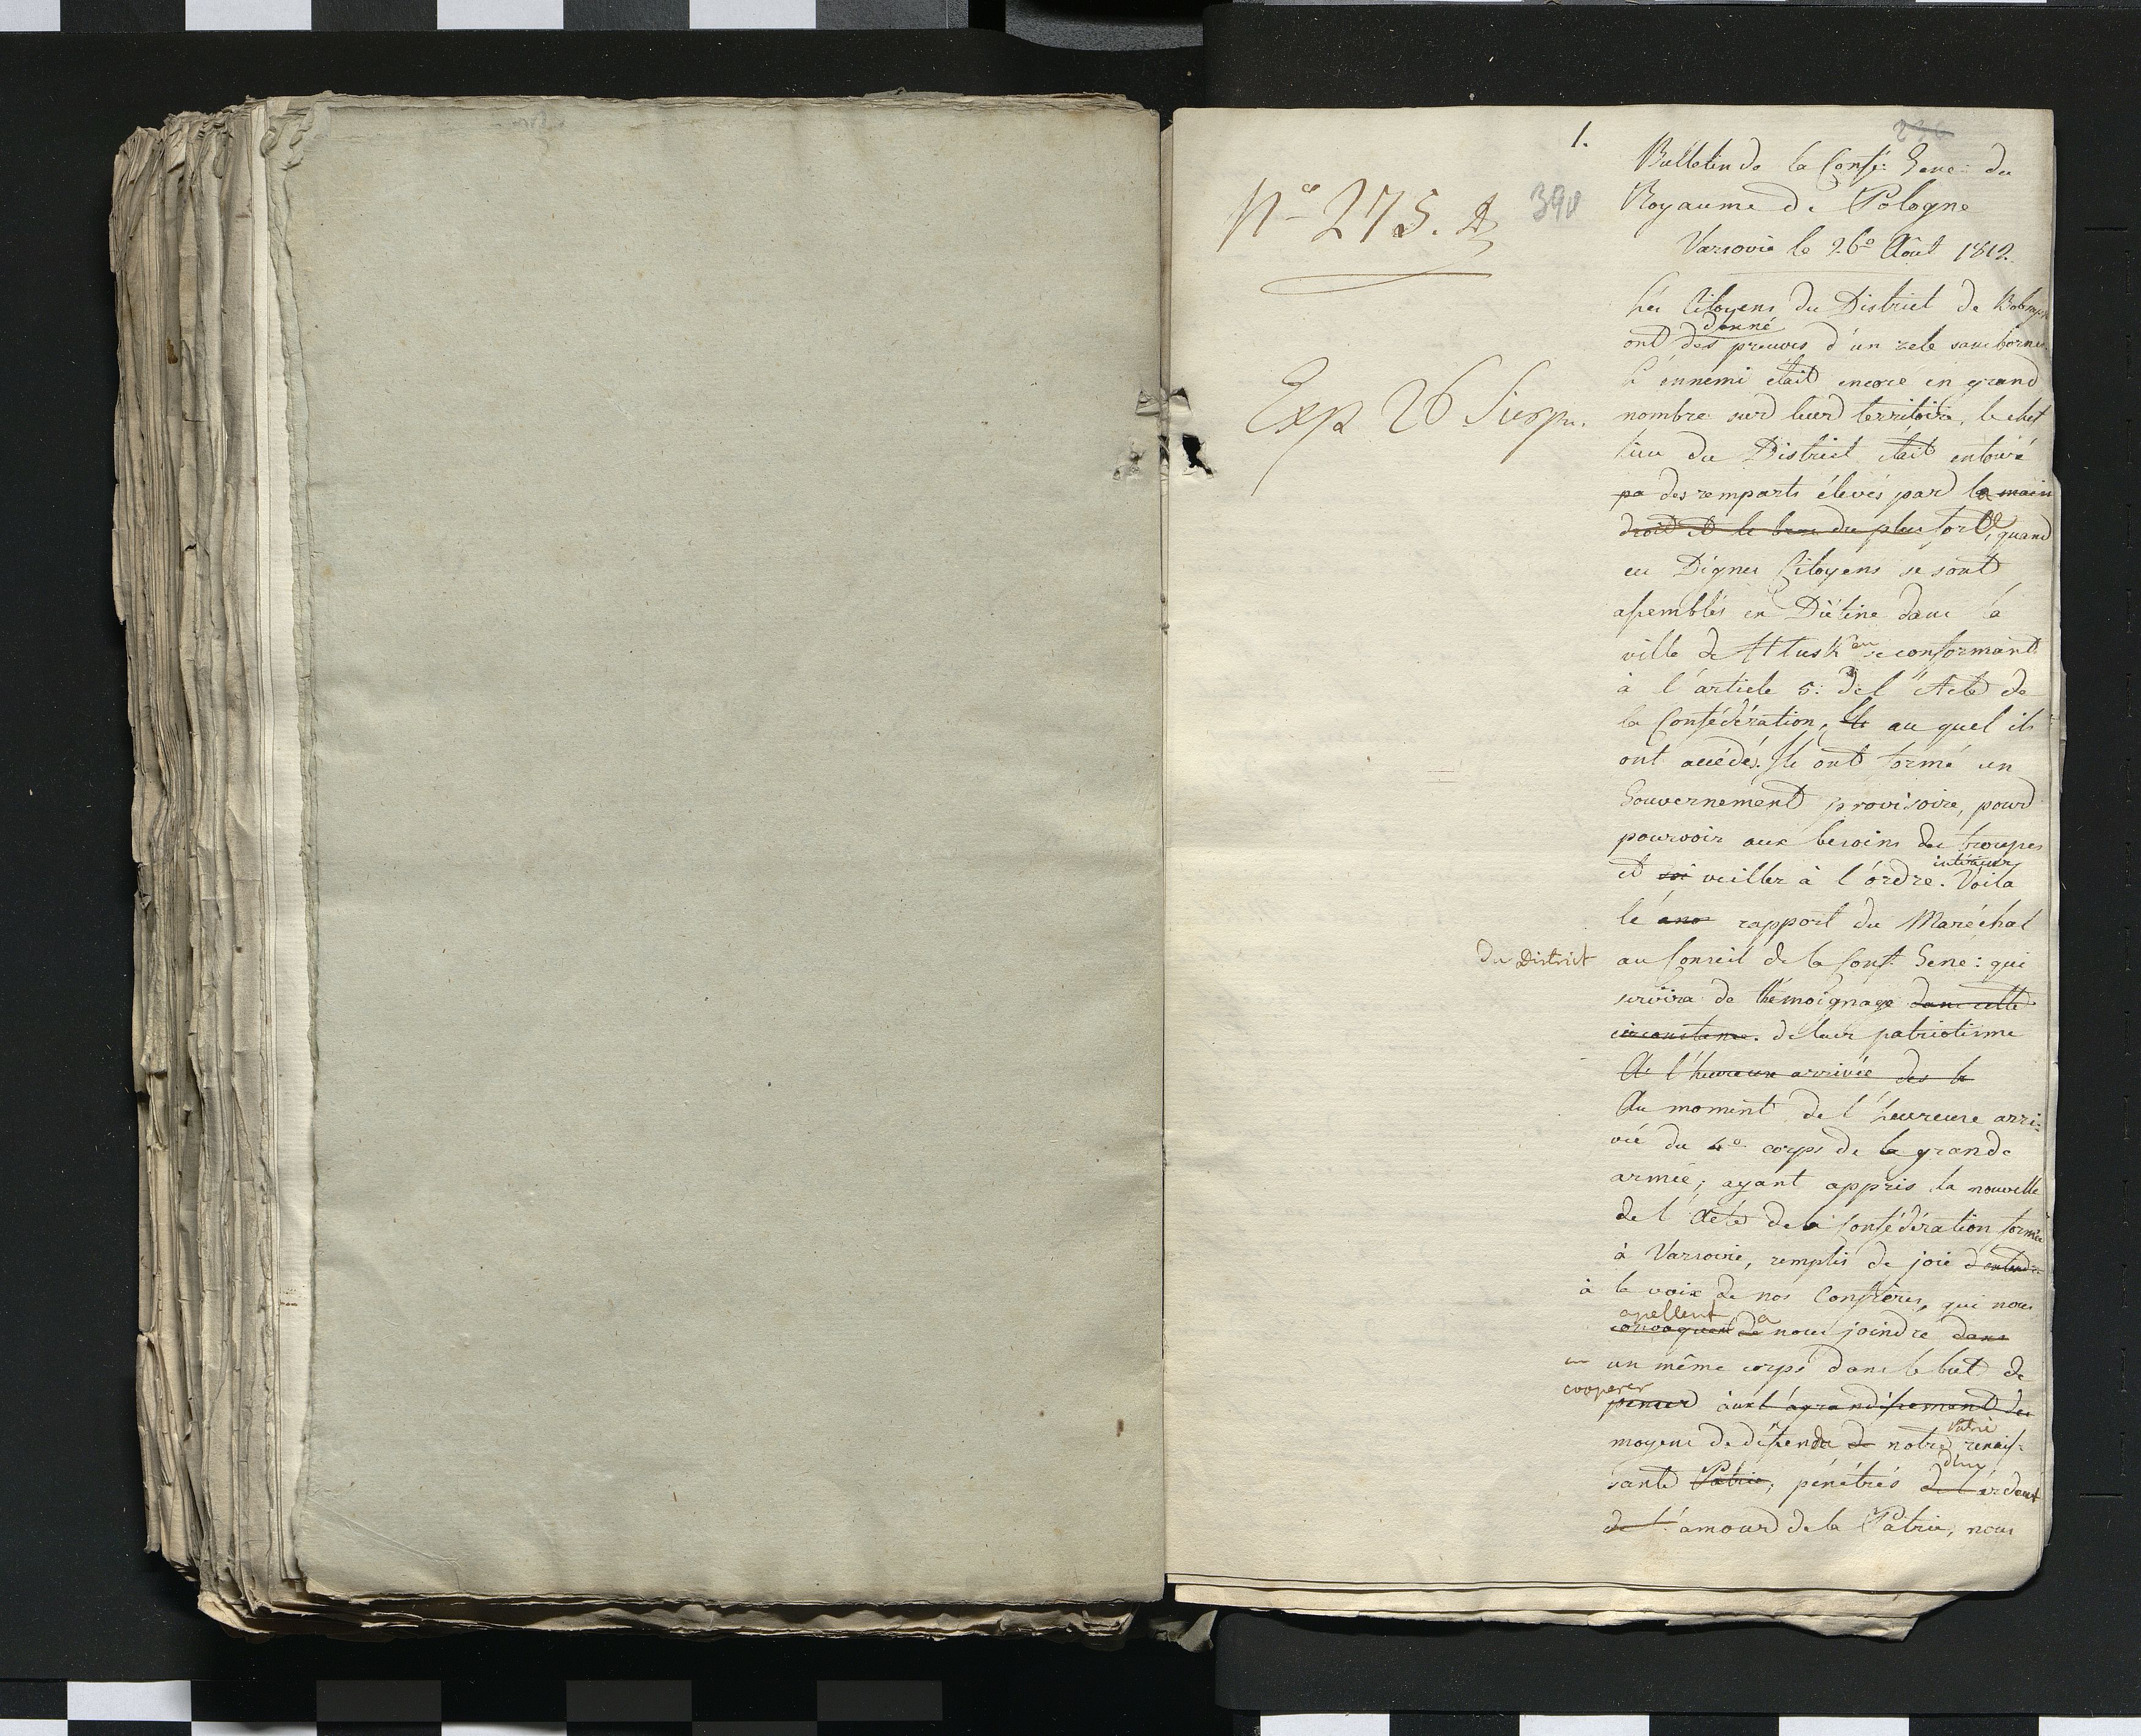 1.
Nro 275. D
390
Exp 26 Sierpn.
Bulletin de la Conf: Gene: du
Royaume de Pologne
Varsovie le 26e Août 1812.
Les Citoyens du District de
donné
ont des preuves d'un zele sans bornes.
L'ennemi était encore en grand
nombre sur leur territoire, le chef
lieu du District était entouré
pa des remparts élevés par la main
droit et le bras du plus fort, quand
ces Dignes Citoyens se sont
assemblés en Diétine dans la
ville de se conformant
à l'article 5: de l'Acte de
la Confédération, au quel ils
ont accédés. Ils ont formé un
Gouvernement provisoire, pour
pourvoir aux besoins des troupes
intérieur
et veiller à l'ordre. Voila
le rapport du Maréchal
du District
au Conseil de la Conf: Gene: qui
servira de themoignage dans cette
circonstance. de leur patriotisme
A l'heureux arrivée des
Au moment de l'heureuse arri-
vée du 4e corps de la grande
armée; ayant appris la nouvelle
de l'Acte de la Confédération formée
à Varsovie, remplis de joie d'entendre
à la voix de nos Confrères, qui nous
apellent à
convoquent de nous joindre dans
en un même corps dans le but de
cooperer
penser aux l'agrandissement des
moyens de défendre de notre Patrie renais-
sante Patrie, pénétrés d'un de l'ardent
de l'amour de la Patrie, nous